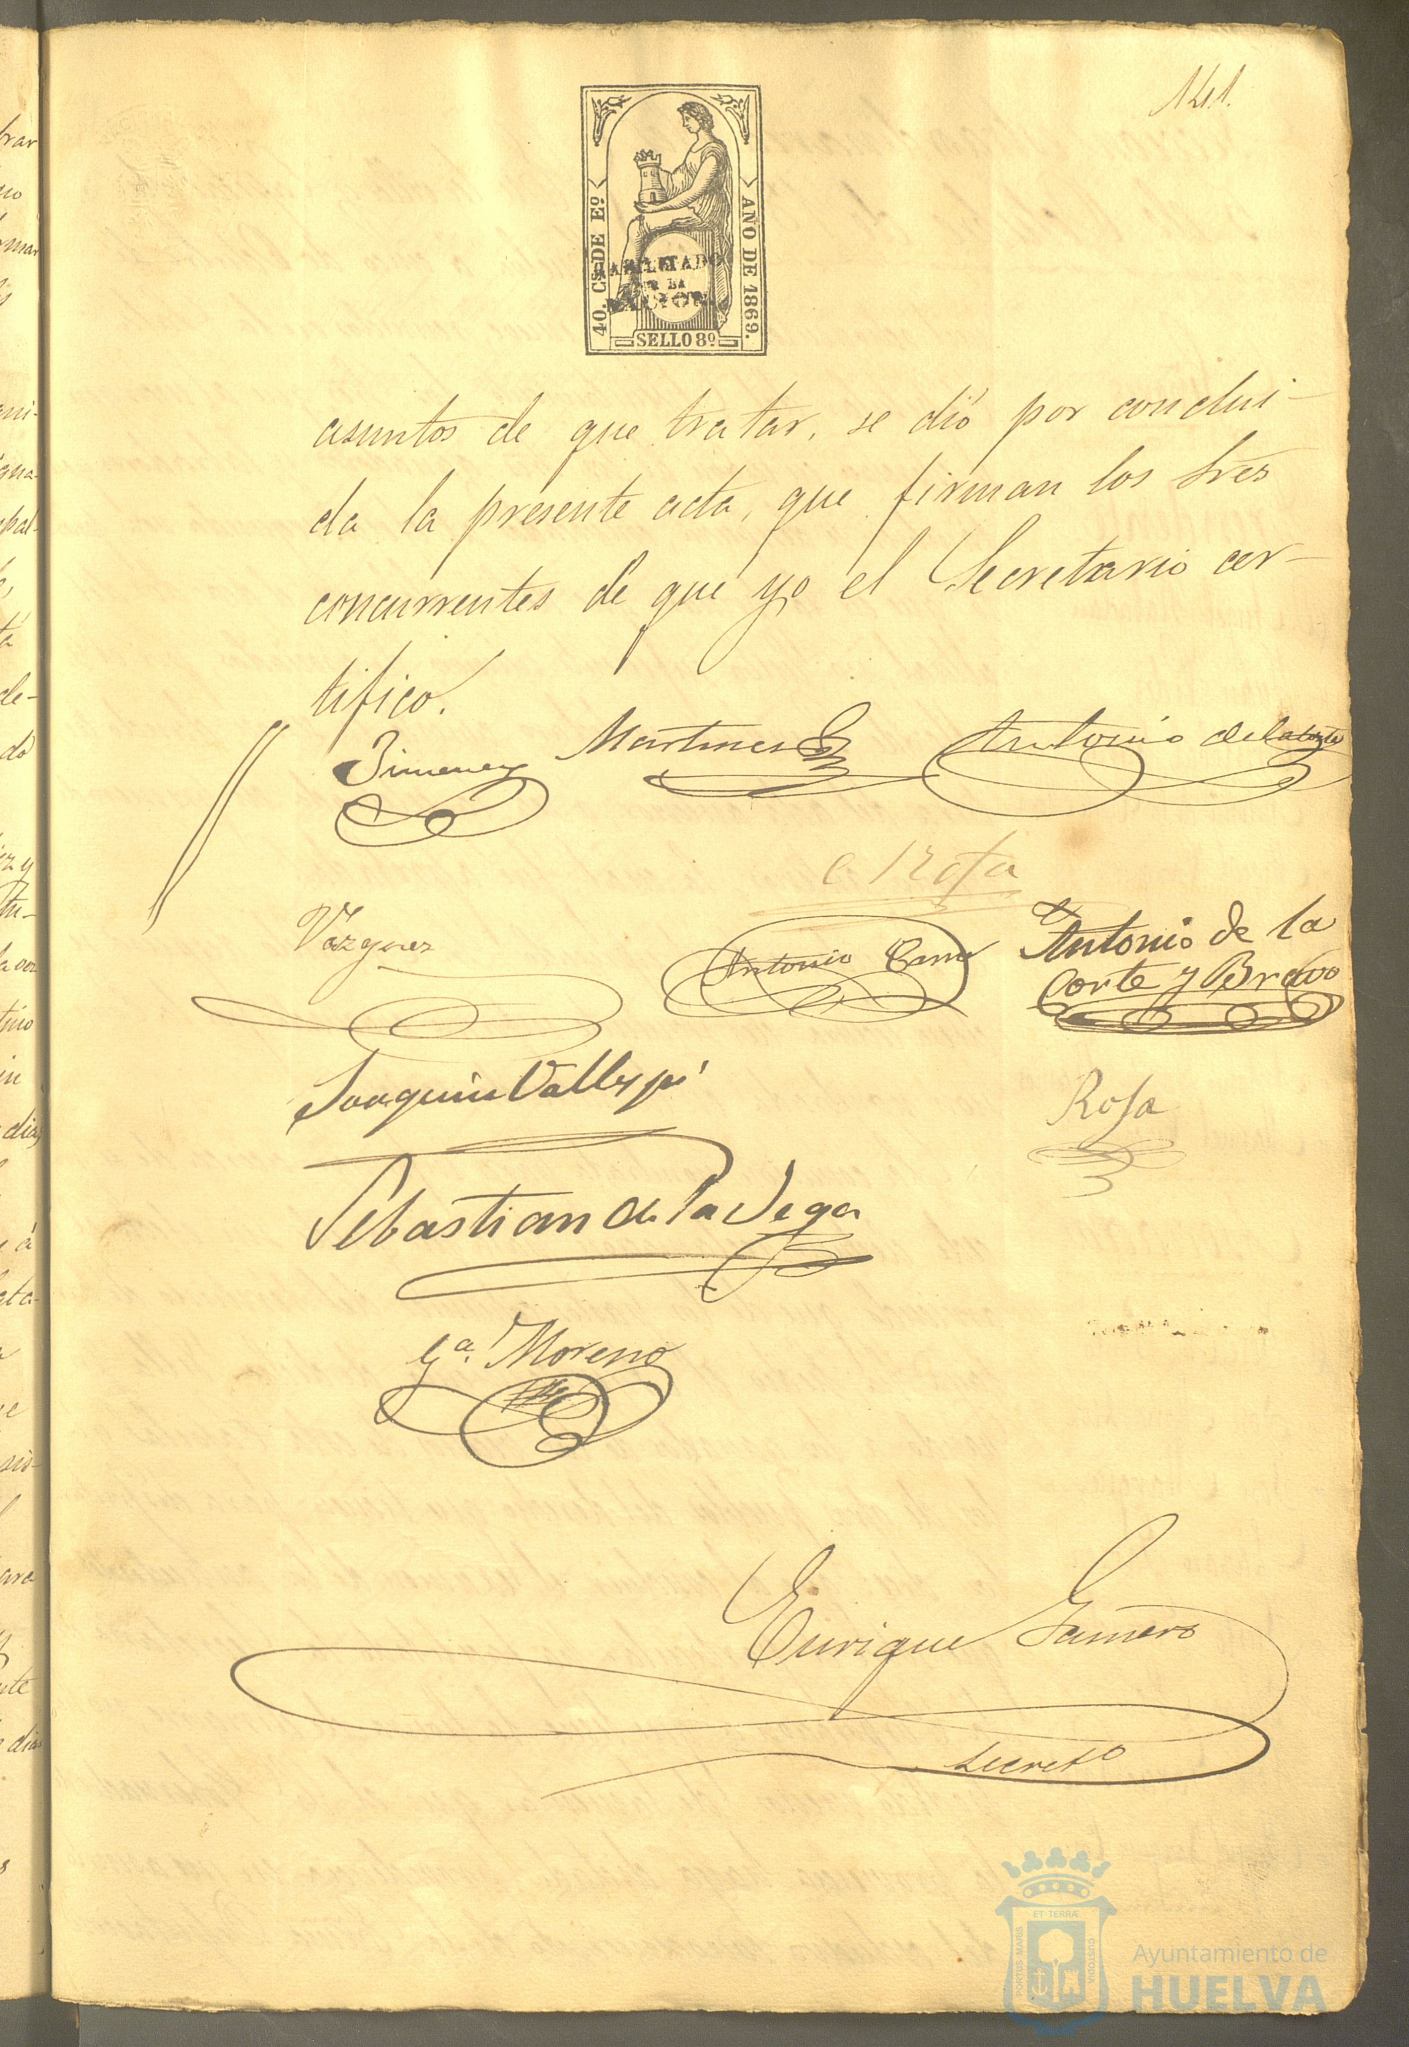 141.
40. Cs. DE Eº
AÑO DE 1869.
HABILITADO
POR LA
NACION.
SELLO 8º
asuntos de que tratar, se dió por conclui-
da la presente acta, que firman los Sres
concurrentes de que yo el Secretario cer-
tifico.
Jimenez Martinez Antonio de la Corte
C Rosa
Vazquez Antonio Antonio de la
Corte y Bravo
Joaquin Vallespi Rosa
Sebastian de la Vega
Gª. Moreno
Enrique Gamero
Secretº
ET TERRÆ
PORTUS MARIS
CUSTODIA
Ayuntamiento de
HUELVA